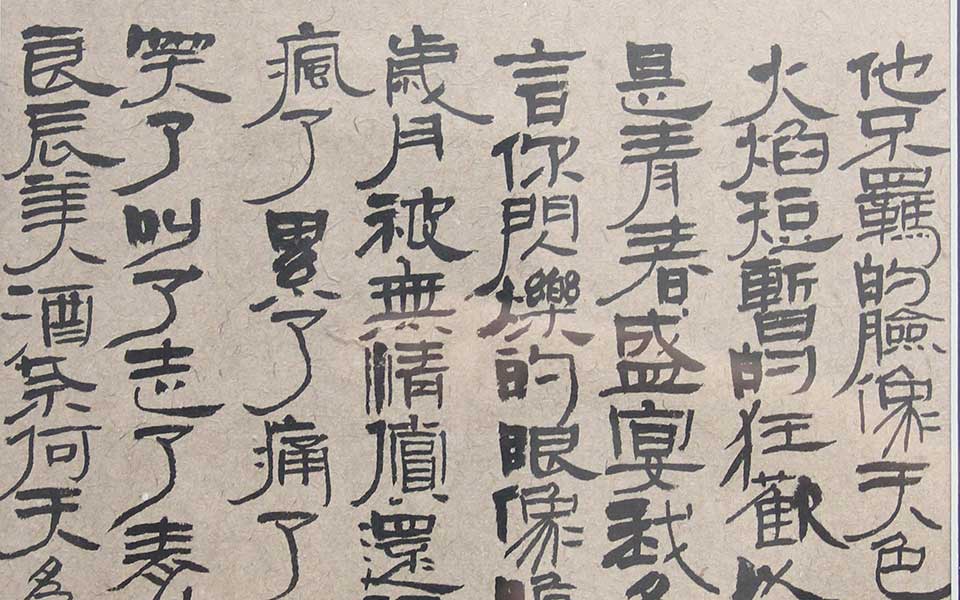 他不羈的臉像天色
火焰短暫的狂歡以
是青春盛宴我
言你閃爍的眼像
歲月被無情償還
瘋了累了痛了
哭了叫了走了
良辰美酒奈何天